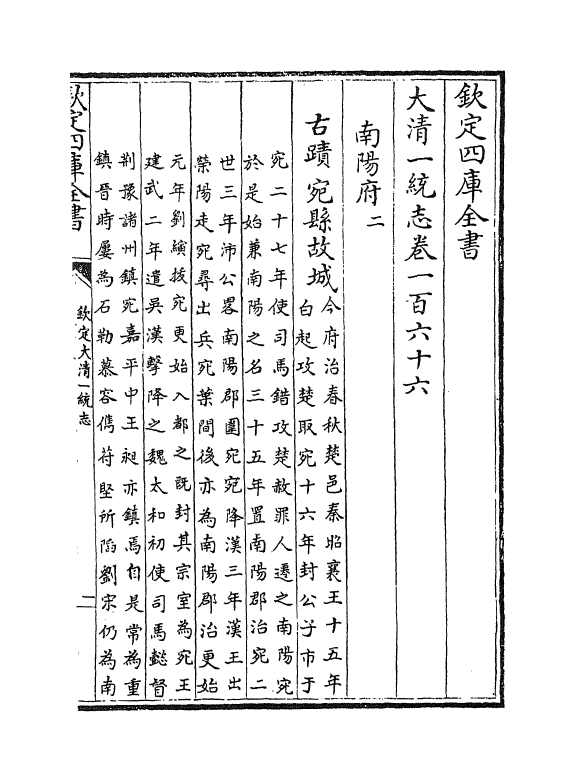 欽定四庫全書
大清一統志卷一百六十六
南陽府二
古蹟
宛縣故城
今府治春秋楚邑秦昭襄王十五年
白起攻楚取宛十六年封公子市于
宛二十七年使司馬錯攻楚赦罪人遷之南陽宛
於是始兼南陽之名三十五年置南陽郡治宛二
世三年沛公畧南陽郡圍宛宛降漢三年漢王出
滎陽走宛尋出兵宛葉間後亦為南陽郡治更始
元年劉縯拔宛更始入都之既封其宗室為宛王
建武二年遣吳漢擊降之魏太和初使司馬懿督
荆豫諸州鎮宛嘉平中王昶亦鎮焉自是常為重
鎮晉時屢為石勒慕容儁苻堅所陷劉宋仍為南
欽定四庫全書
欽定大清一統志
二